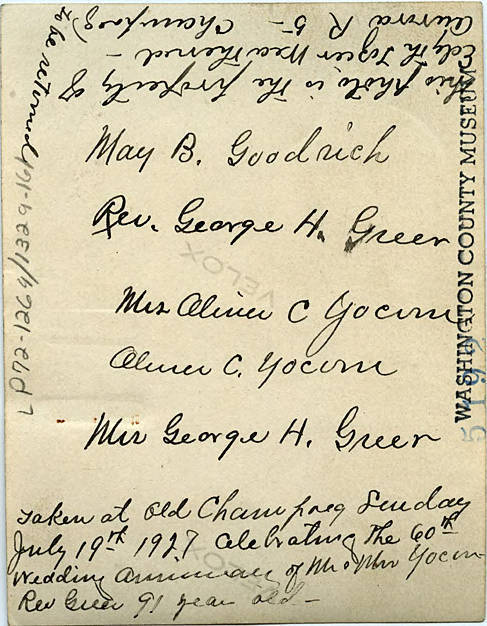 This photo is the property of
Edyth Tozier Weatherred —
Aurora R 5 — Champoeg
to be returned
May B. Goodrich
Rev. George H. Greer
Mrs Oliver C Yocom
Oliver C. Yocom
Mrs George H. Greer
Taken at Old Champoeg Sunday
July 19th 1927 Celebrating the 60th
Wedding Anniversary of Mr & Mrs Yocom
Rev Greer 91 year old —
LP72-1269/1329-161
WASHINGTON COUNTY MUSEUM
VELOX
VELOX